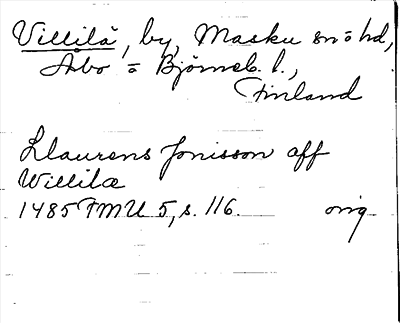 Villilä, by, Masku sn o hd,
Åbo o Björneb. l.,
Finland
Llaurens Jonisson aff
Willila
1485 FMU 5, s. 116. orig